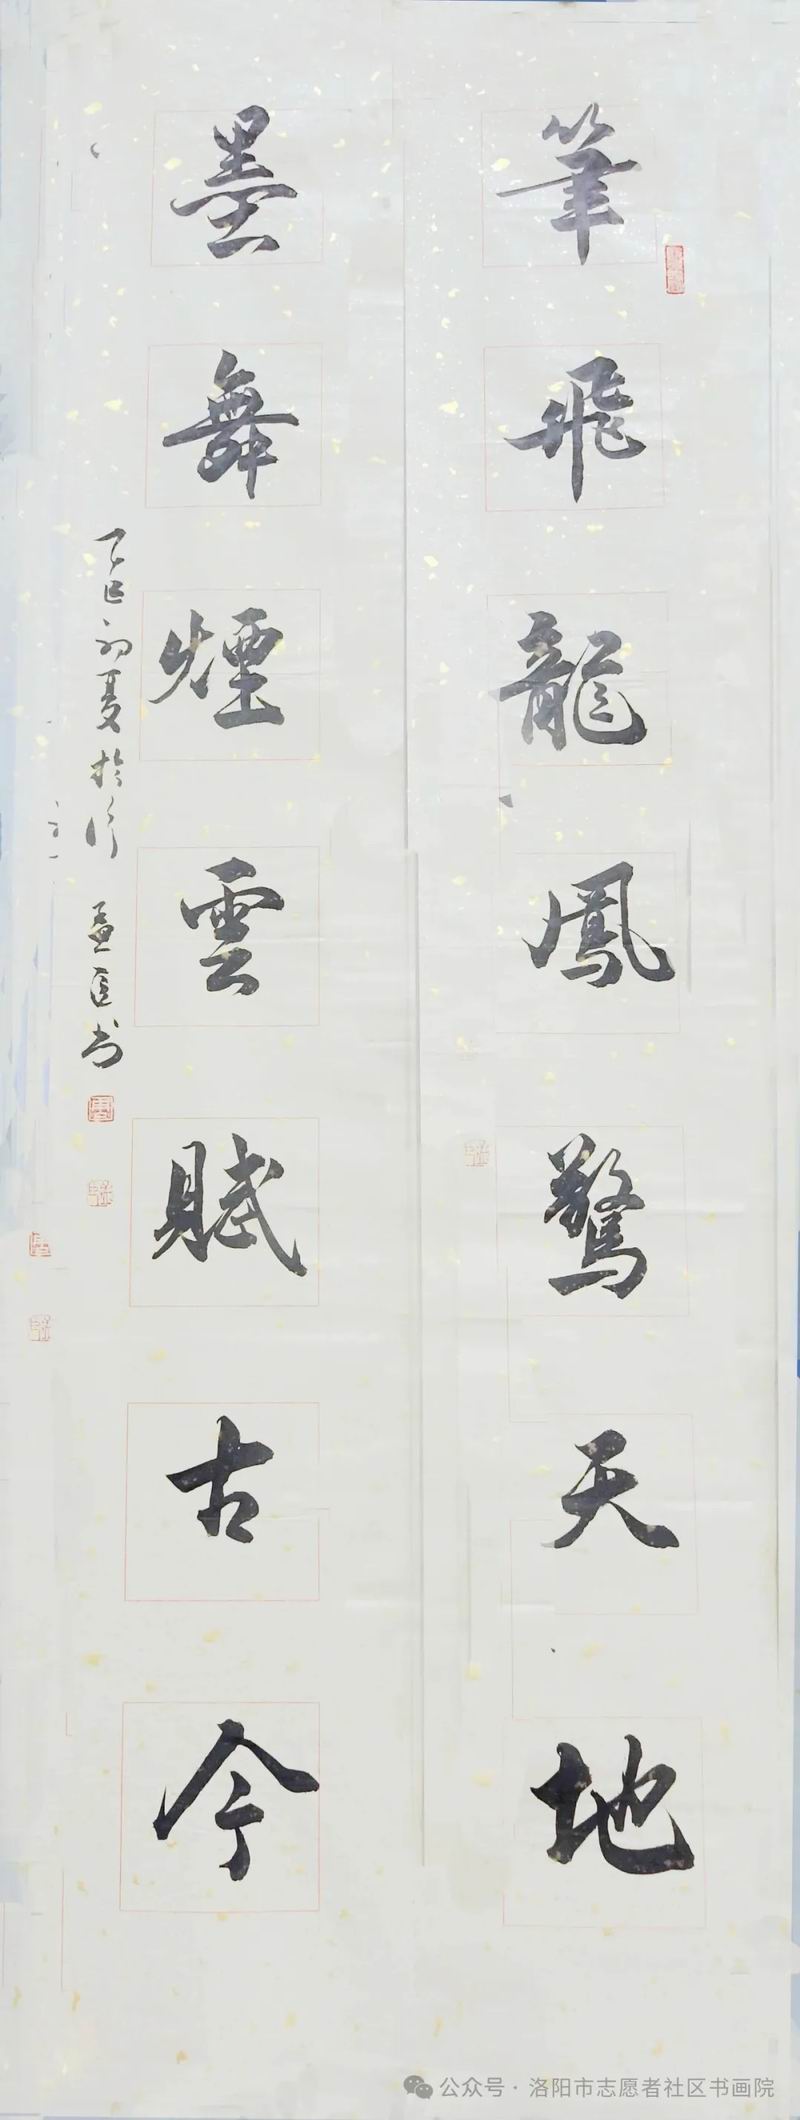 筆飛龍鳳驚天地
墨舞煙雲賦古今
乙巳初夏於洛 孟匡书
公众号·洛阳市志愿者社区书画院